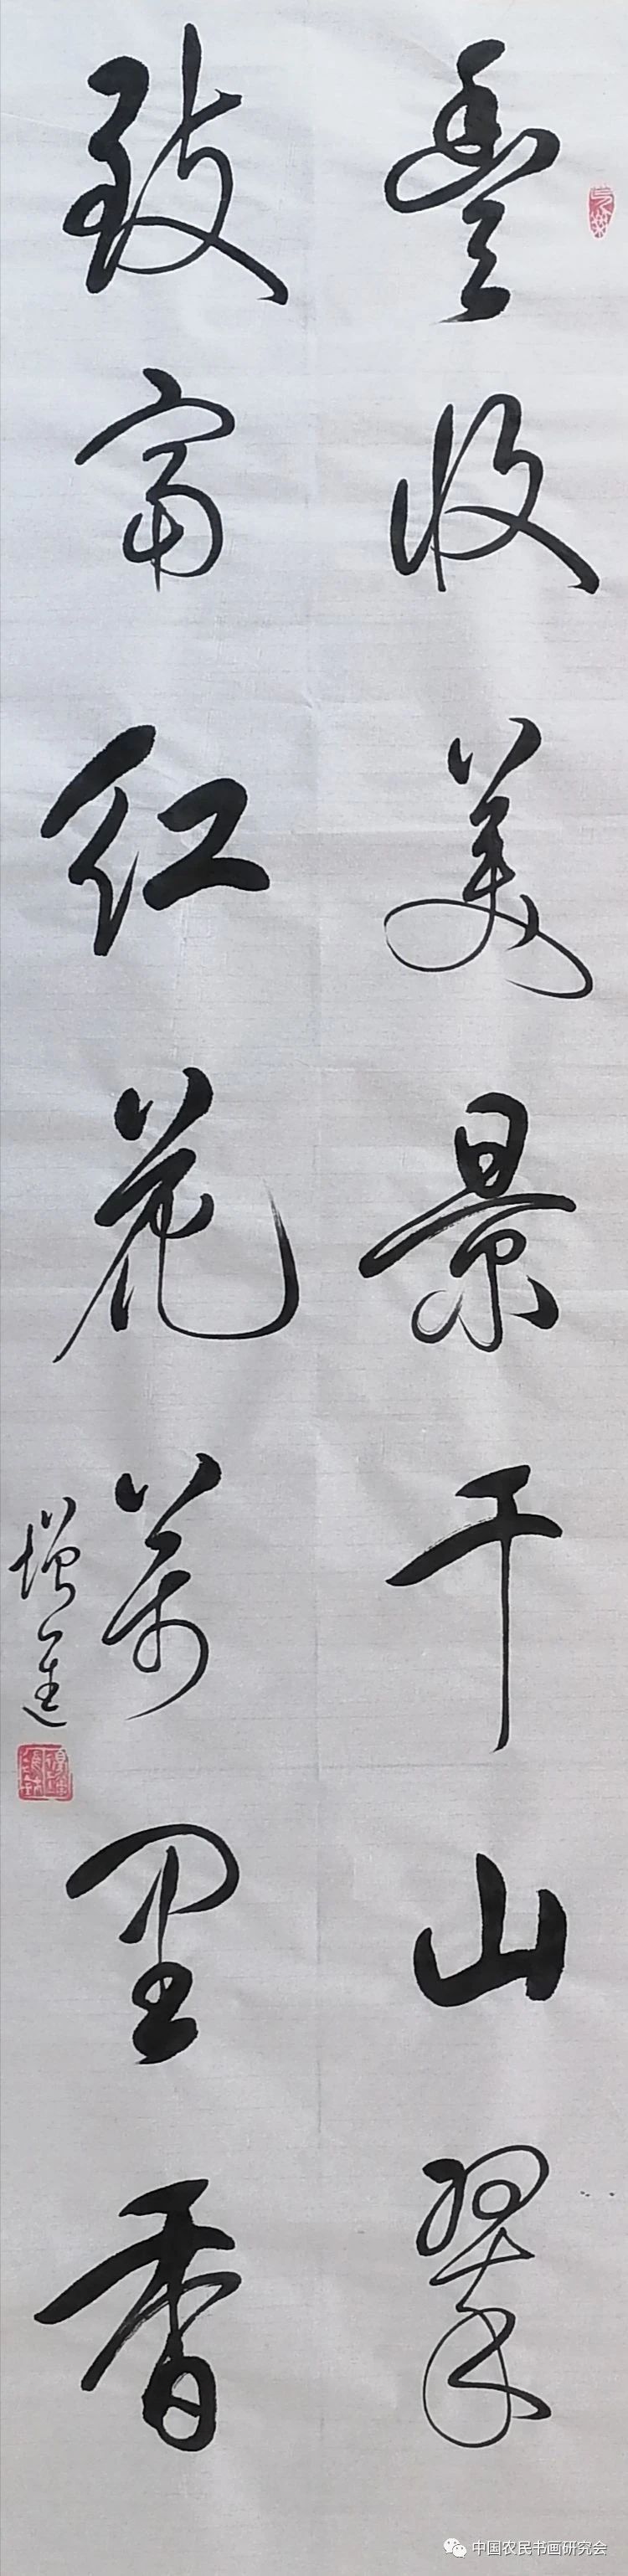 豊收美景千山翠
致富红花万里香
增進
中国农民书画研究会